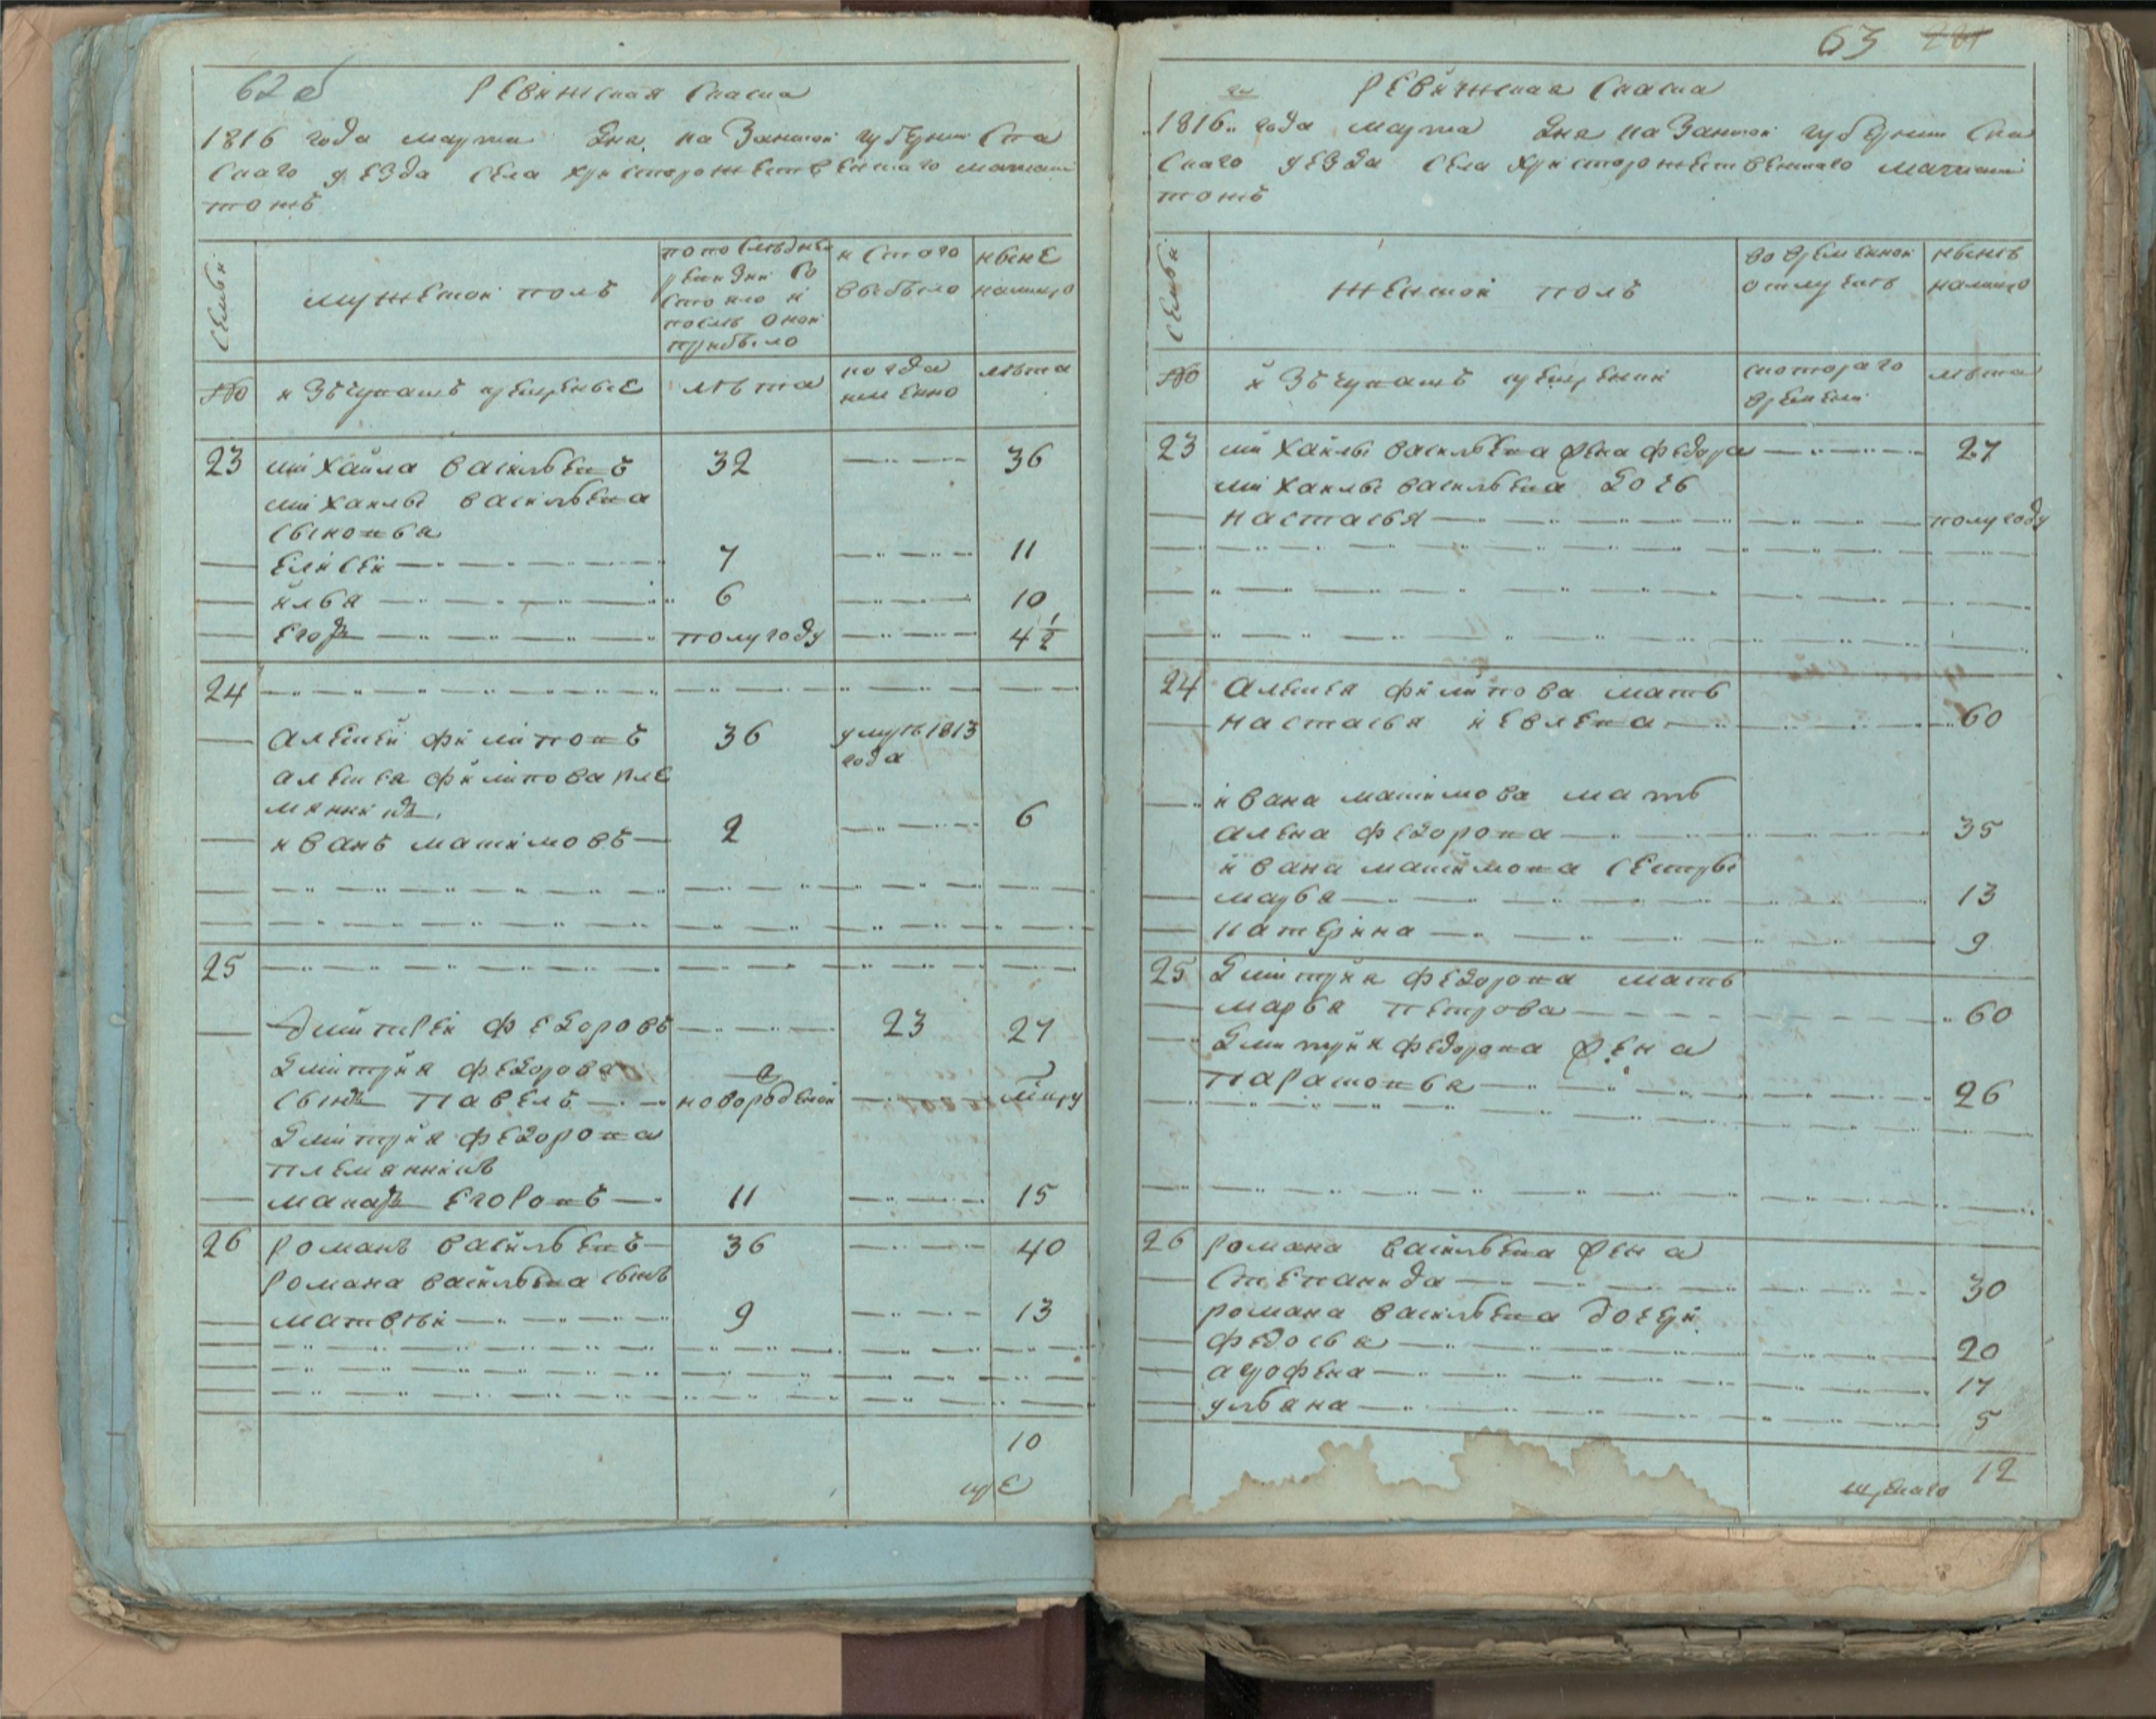 62 об
Ревижская Скаска
1816 года марта дня. Казанской губернии Спа
скаго уезда села христорожественскаго
тожъ
семьи
мужеской полъ
по последней
ревизии со
стояло и
после оной
прибыло
ис того
выбыло
ныне
налицо
№
и зъ чувашъ крещеные
лѣта
когда
именно
лѣта
23 михайла васильевъ 32 36
михайлы васильева
сыновья
елисей 7 11
илья 6 10
егоръ полугоду 4 1/2
24
алексей филиповъ 36 умре 1813
года
алексея филипова пле
мянникъ
иванъ максимовъ 2 6
25
Дмитрей федоровъ 23 27
Дмитрия федорова
сынъ павелъ новорожденой
Дмитрия федорова
племянникъ
макаръ егоровъ 11 15
26 романъ васильевъ 36 40
романа васильева сынъ
матвѣй 9 13
10
63
Ревижская Скаска
1816 года марта дня Казанской губернии Спа
скаго уезда села христорожественскаго
тожъ
семьи
женской полъ
во временной
отлучке
нынѣ
налицо
№
и зъ чувашъ крещении
с котораго
времени
лѣта
23 михайлы васильева жена федора 27
михайлы васильева дочь
настасья полугоду
24 Алексея филипова мать
настасья иевлева 60
ивана максимова мать
алена федорова 35
ивана максимова сестры
марья 13
катерина 9
25 Дмитрия федорова мать
марья петрова 60
Дмитрия федорова жена
парасковья 26
26 романа васильева жена
степанида 30
романа васильева дочери
федосья 20
агрофена 17
ульяна 5
12